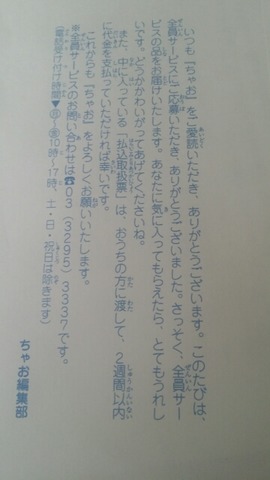 いつも『ちゃお』をご愛読いただき、ありがとうございます。このたびは、
全員サービスにご応募いただき、ありがとうございました。さっそく、全員サー
ビスの品をお届けいたします。あなたに気に入ってもらえたら、とてもうれし
いです。どうかかわいがってあげてくださいね。
また、中に入っている「払込取扱票」は、おうちの方に渡して、2週間以内
に代金を支払っていただければ幸いです。
これからも『ちゃお』をよろしくお願いいたします。
※全員サービスのお問い合わせは☎03(3295)3337です。
(電話受け付け時間▼㊊〜㊎10時〜17時、土・日・祝日は除きます)
ちゃお編集部